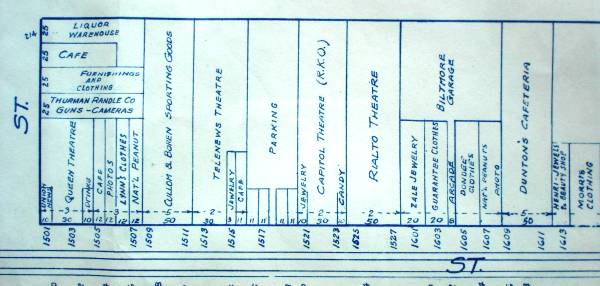 LIQUOR
WAREHOUSE
214
25
CAFE
25
FURNISHINGS
AND
CLOTHING
25
THURMAN RANDLE CO
GUNS - CAMERAS
25
ST.
QUEEN THEATRE
CAFE
PHOTOS
LYNN'S CLOTHES
NAT'L PEANUT
CULLUM & BOREN SPORTING GOODS
TELENEWS THEATRE
JEWELRY
CAFE
PARKING
JEWELRY
CAPITOL THEATRE (R.K.O.)
CANDY
RIALTO THEATRE
BILTMORE
GARAGE
ZALE JEWELRY
GUARANTEE CLOTHES
ARCADE
DUNDEE
CLOTHES
NAT'L PEANUTS
PHOTO
DUNTON'S CAFETERIA
HENRI-JEWELS
& BEAUTY SHOP
MORRIS
CLOTHING
3 3 5 2 2 2 5
30 10 12 12 50 30 11 11 11 11 10 30 50 20 20 50
1501 1503 1505 1507 1509 1511 1513 1515 1517 1521 1523 1525 1527 1601 1603 1605 1607 1609 1611 1613
ST.